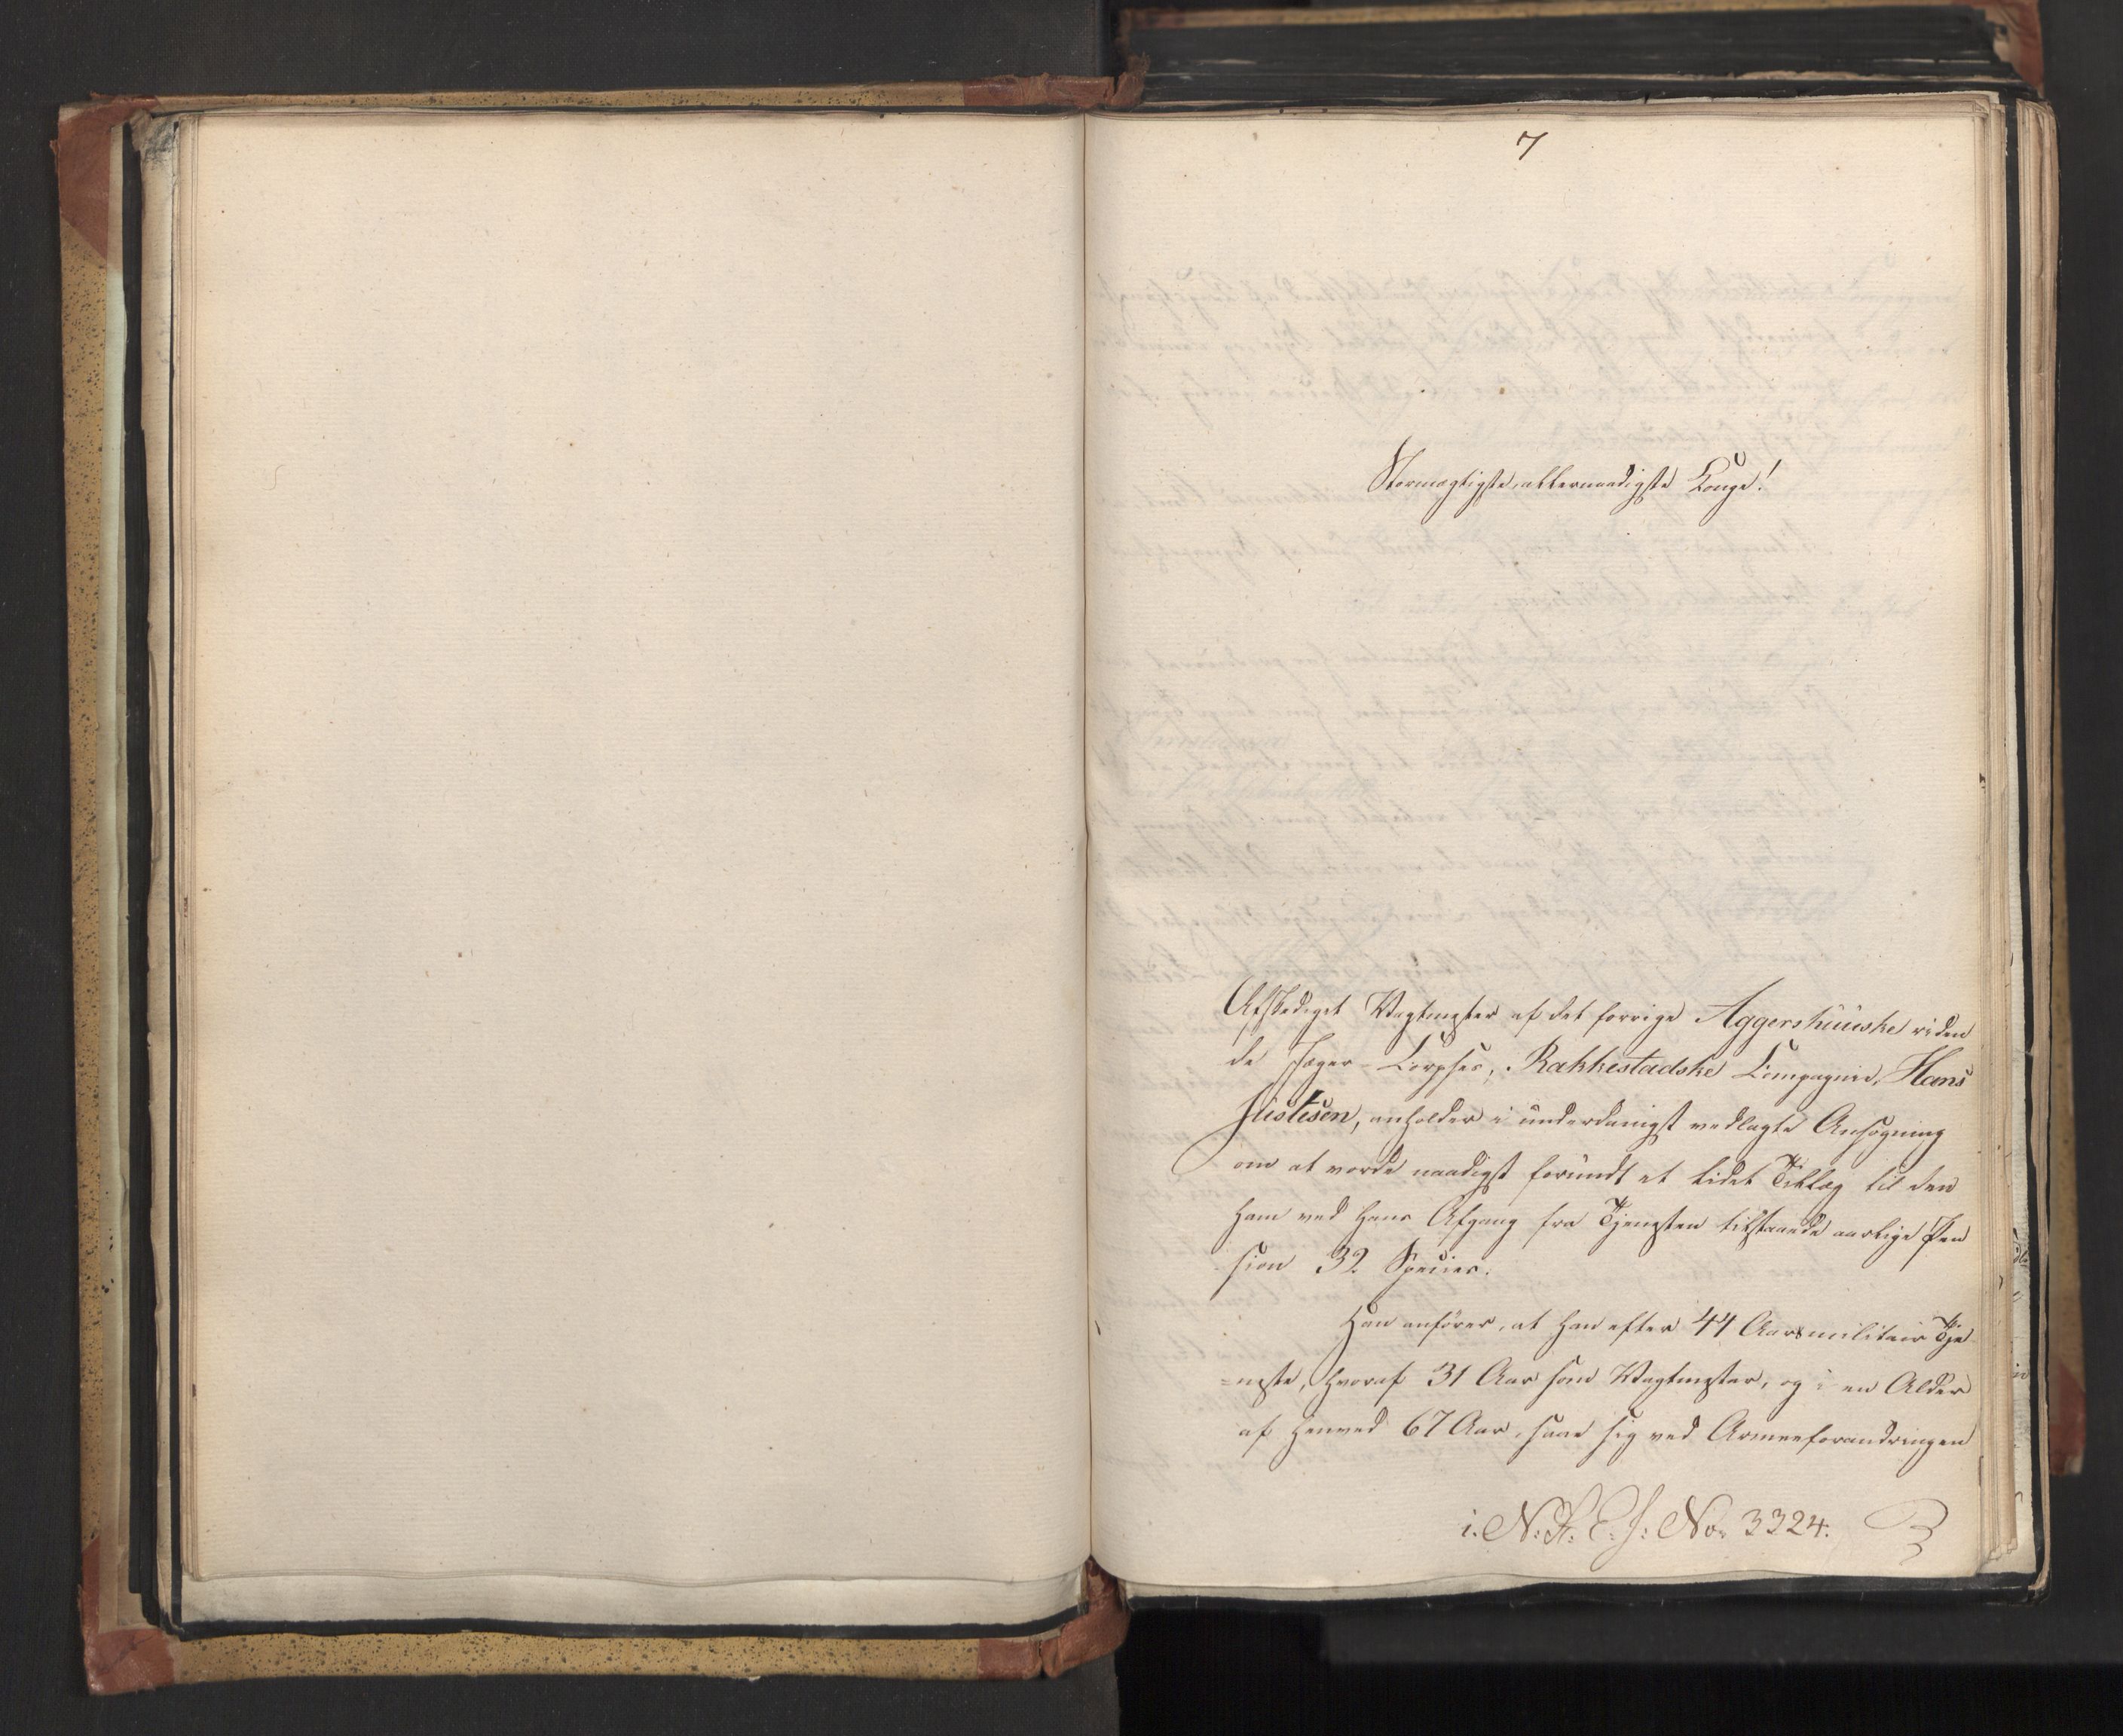 7
Stormægtigste, allernaadigste Konge!
Afskediget Vagtmester af det forrige Aggershuuske riden
de Jæger-Corpses, Rakkestadske Compagnie, Hans
Justesen, anholder i underdanigst vedlagte Ansøgning
om at vorde naadigst forundt et lidet Tillæg til den
ham ved hans Afgang fra Tjenesten tilstaaede aarlige Pen
sion 32 Species.
Han anfører, at han efter 44 Aars militair Tje
=neste, hvoraf 31 Aar som Vagtmester, og i en Alder
af henved 67 Aar, saae sig ved Armeeforandringen
i. N: R: E: J: No. 3324.